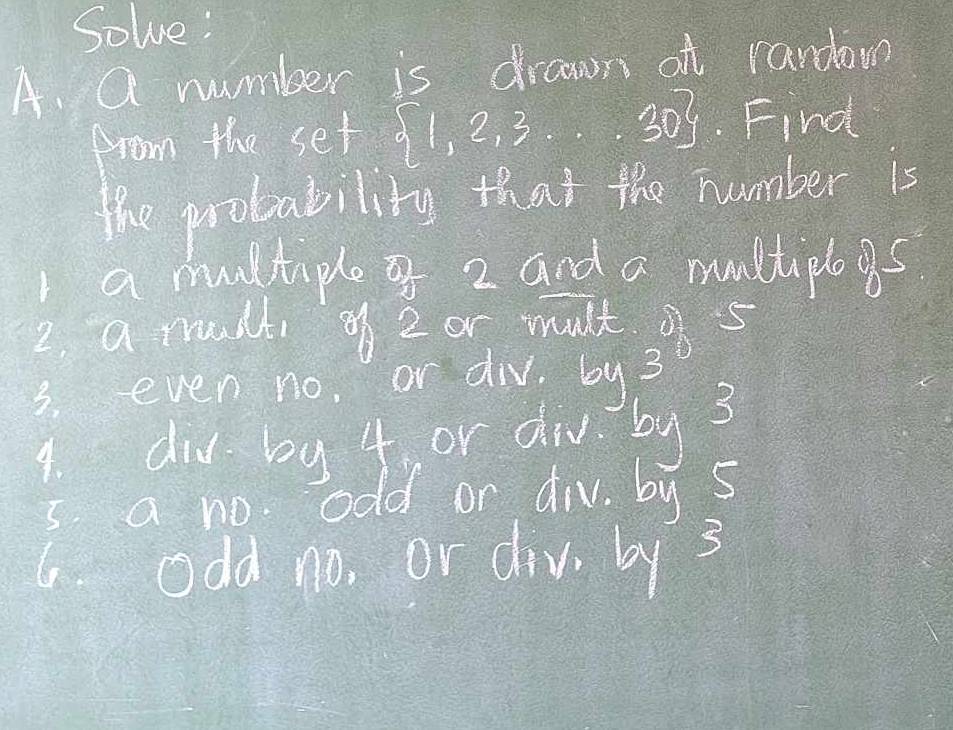 Solve:
A. A number is drawn at random
from the set {1, 2, 3 . . . . 30}. Find
the probability that the number is
1 a multiple of 2 and a multiple of 5.
2. a multi of 2 or mult. of 5
3. even no. or div. by 3
4. div. by 4 or div. by 3
5. a no. odd or div. by 5
6. odd no. or div. by 3